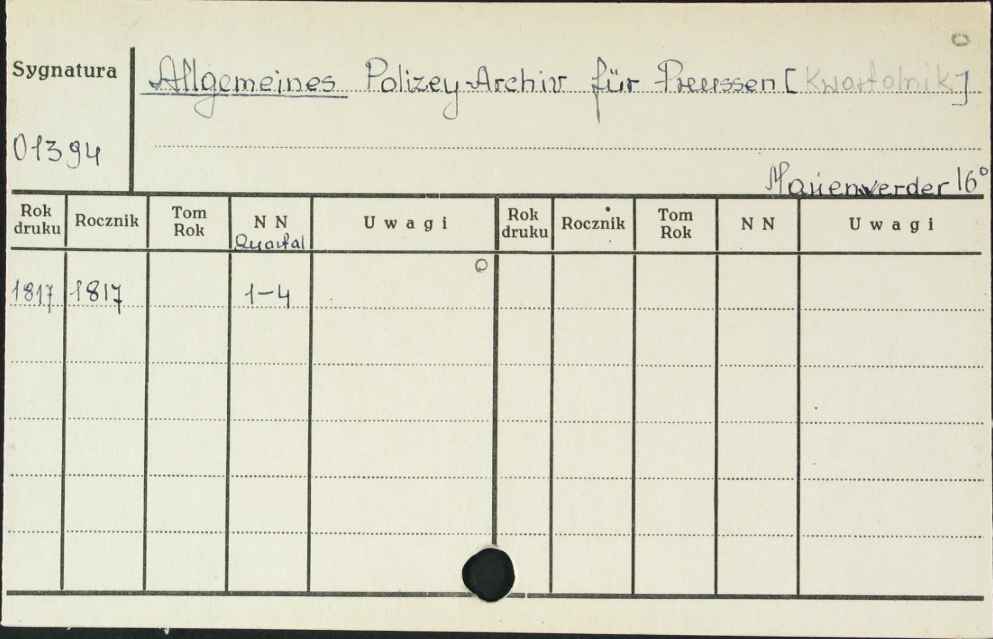 Sygnatura
Allgemeines Polizey-Archiv für Preussen [Kwartalnik]
01394
Marienwerder 16°
Rok druku Rocznik Tom Rok N N Quartal Uwagi Rok druku Rocznik Tom Rok N N Uwagi
1817 1817 1-4